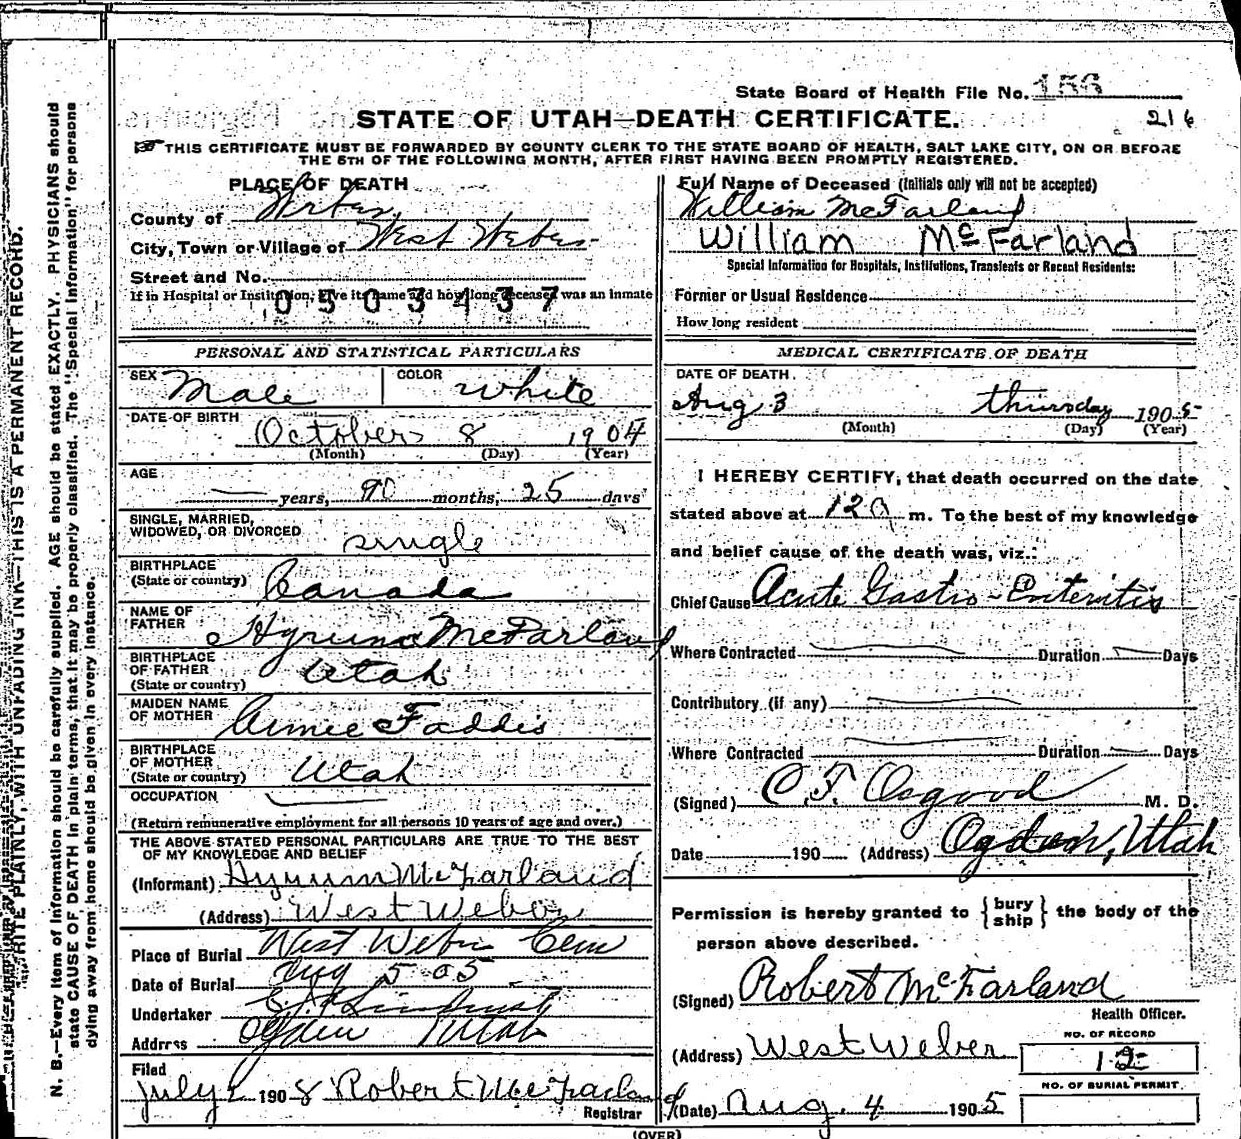 State Board of Health File No. 156
216
STATE OF UTAH—DEATH CERTIFICATE.
THIS CERTIFICATE MUST BE FORWARDED BY COUNTY CLERK TO THE STATE BOARD OF HEALTH, SALT LAKE CITY, ON OR BEFORE
THE 5TH OF THE FOLLOWING MONTH, AFTER FIRST HAVING BEEN PROMPTLY REGISTERED.
WRITE PLAINLY, WITH UNFADING INK—THIS IS A PERMANENT RECORD.
N. B.—Every item of information should be carefully supplied. AGE should be stated EXACTLY. PHYSICIANS should
state CAUSE OF DEATH in plain terms, that it may be properly classified. The "Special Information" for persons
dying away from home should be given in every instance.
PLACE OF DEATH
County of Weber
City, Town or Village of West Weber
Street and No.
If in Hospital or Institution, give its name and how long deceased was an inmate
0503437
PERSONAL AND STATISTICAL PARTICULARS
SEX Male COLOR White
DATE OF BIRTH October 8 1904
(Month) (Day) (Year)
AGE
— years, months, 25 days
SINGLE, MARRIED,
WIDOWED, OR DIVORCED single
BIRTHPLACE
(State or country) Canada
NAME OF
FATHER Hyrum McFarland
BIRTHPLACE
OF FATHER
(State or country) Utah
MAIDEN NAME
OF MOTHER Aimee Faddis
BIRTHPLACE
OF MOTHER
(State or country) Utah
OCCUPATION
(Return remunerative employment for all persons 10 years of age and over.)
THE ABOVE STATED PERSONAL PARTICULARS ARE TRUE TO THE BEST
OF MY KNOWLEDGE AND BELIEF
(Informant) Hyrum McFarland
(Address) West Weber
Place of Burial West Weber Cem
Date of Burial Aug 5 - 05
Undertaker
Address Ogden Utah
Filed
July 1908 Robert McFarland
Registrar
Full Name of Deceased (Initials only will not be accepted)
William McFarland
William McFarland
Special Information for Hospitals, Institutions, Transients or Recent Residents:
Former or Usual Residence
How long resident
MEDICAL CERTIFICATE OF DEATH
DATE OF DEATH
Aug 3 thursday 1905
(Month) (Day) (Year)
I HEREBY CERTIFY, that death occurred on the date
stated above at 12 a m. To the best of my knowledge
and belief cause of the death was, viz.:
Chief Cause Acute Gastro-Enteritis
Where Contracted Duration Days
Contributory (if any)
Where Contracted Duration Days
(Signed) O F. Osgood M. D.
Date 190 (Address) Ogden, Utah
Permission is hereby granted to {bury ship} the body of the
person above described.
(Signed) Robert McFarland
Health Officer.
(Address) West Weber
NO. OF RECORD
12
NO. OF BURIAL PERMIT
(Date) Aug. 4 1905
(OVER)